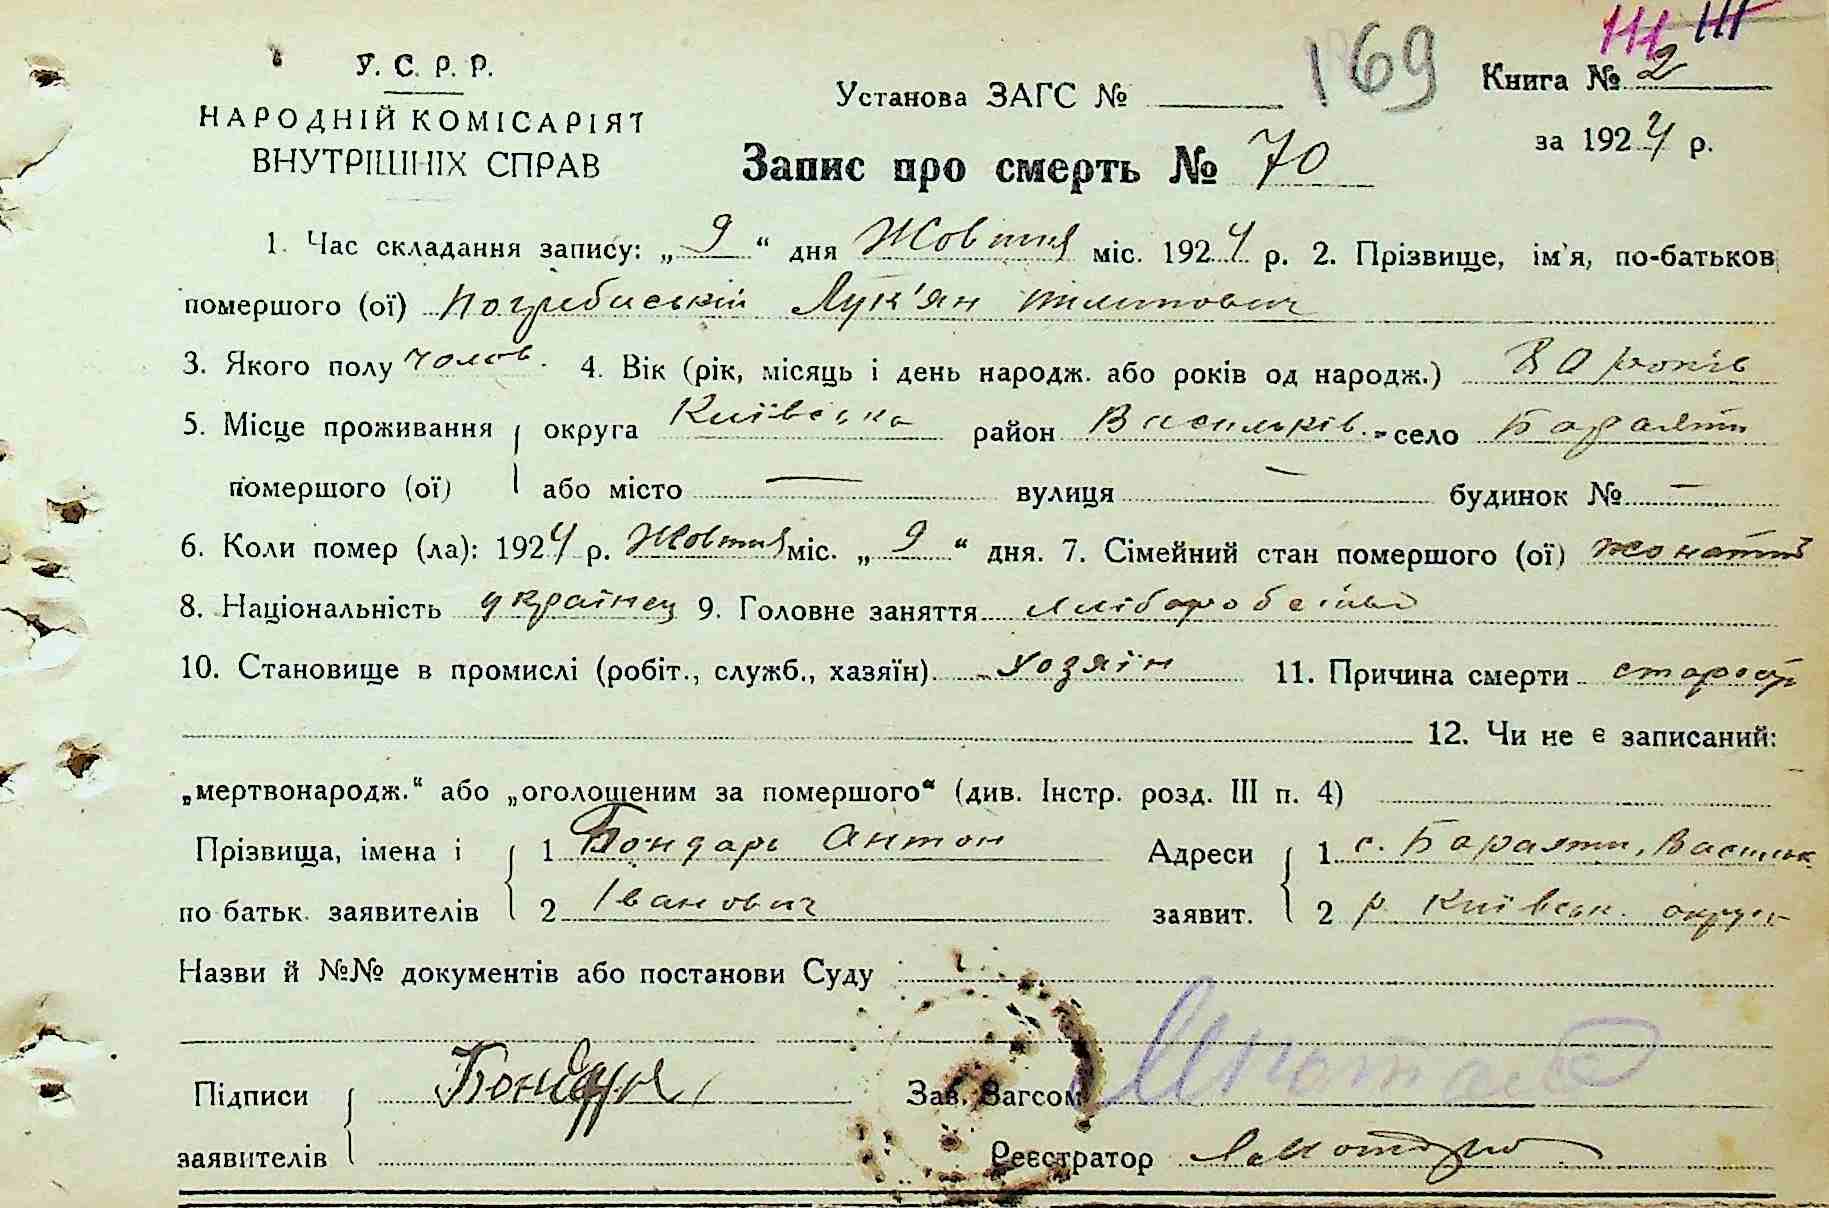 У. С. Р. Р.
НАРОДНІЙ КОМІСАРІЯТ
ВНУТРІШНІХ СПРАВ
Установа ЗАГС №
169
Книга № 2
за 1924 р.
Запис про смерть № 70
1. Час складання запису: „ 9 “ дня Жовтня міс. 1924 р. 2. Прізвище, ім'я, по-батьков
помершого (ої) Погребиський Лук'ян Пилипович
3. Якого полу чолов. 4. Вік (рік, місяць і день народж. або років од народж.) 80 років
5. Місце проживання округа Київська район Васильків. село Барахти
помершого (ої) або місто — вулиця — будинок № —
6. Коли помер (ла): 1924 р. Жовтня міс. „ 9 “ дня. 7. Сімейний стан помершого (ої) жонатий
8. Національність українец 9. Головне заняття хліборобство
10. Становище в промислі (робіт., служб., хазяїн) хозяїн 11. Причина смерти
12. Чи не є записаний:
„мертвонародж.“ або „оголошеним за помершого“ (див. Інстр. розд. III п. 4)
Прізвища, імена і 1 Бондарь Антон Адреси 1 с. Барахти, Васильк
по батьк. заявителів 2 Іванович заявит. 2 р. Київськ. округи
Назви й №№ документів або постанови Суду
Підписи Бондарь Зав. Загсом
заявителів Реєстратор